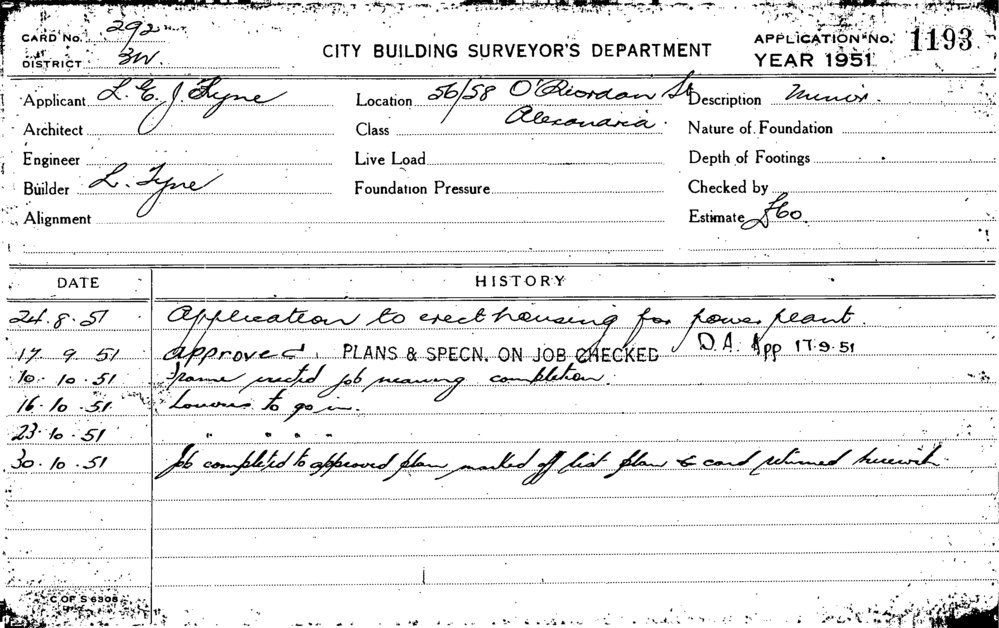 CARD No. 292
DISTRICT 3W.
CITY BUILDING SURVEYOR'S DEPARTMENT
APPLICATION No. 1193
YEAR 1951
Applicant L. E. J. Tyne
Location 56/58 O'Riordan St
Alexandria.
Description Minor.
Architect
Class
Nature of Foundation
Engineer
Live Load
Depth of Footings
Builder L. Tyne
Foundation Pressure
Checked by
Alignment
Estimate £60
DATE HISTORY
24.8.51 Application to erect housing for power plant.
17.9.51 approved. PLANS & SPECN. ON JOB CHECKED D.A. App 17.9.51
10.10.51 Frame erected job nearing completion.
16.10.51 Louvres to go in.
23.10.51 " " " "
30.10.51 Job completed to approved plan marked off list plan & card returned herewith
C OF S 6308